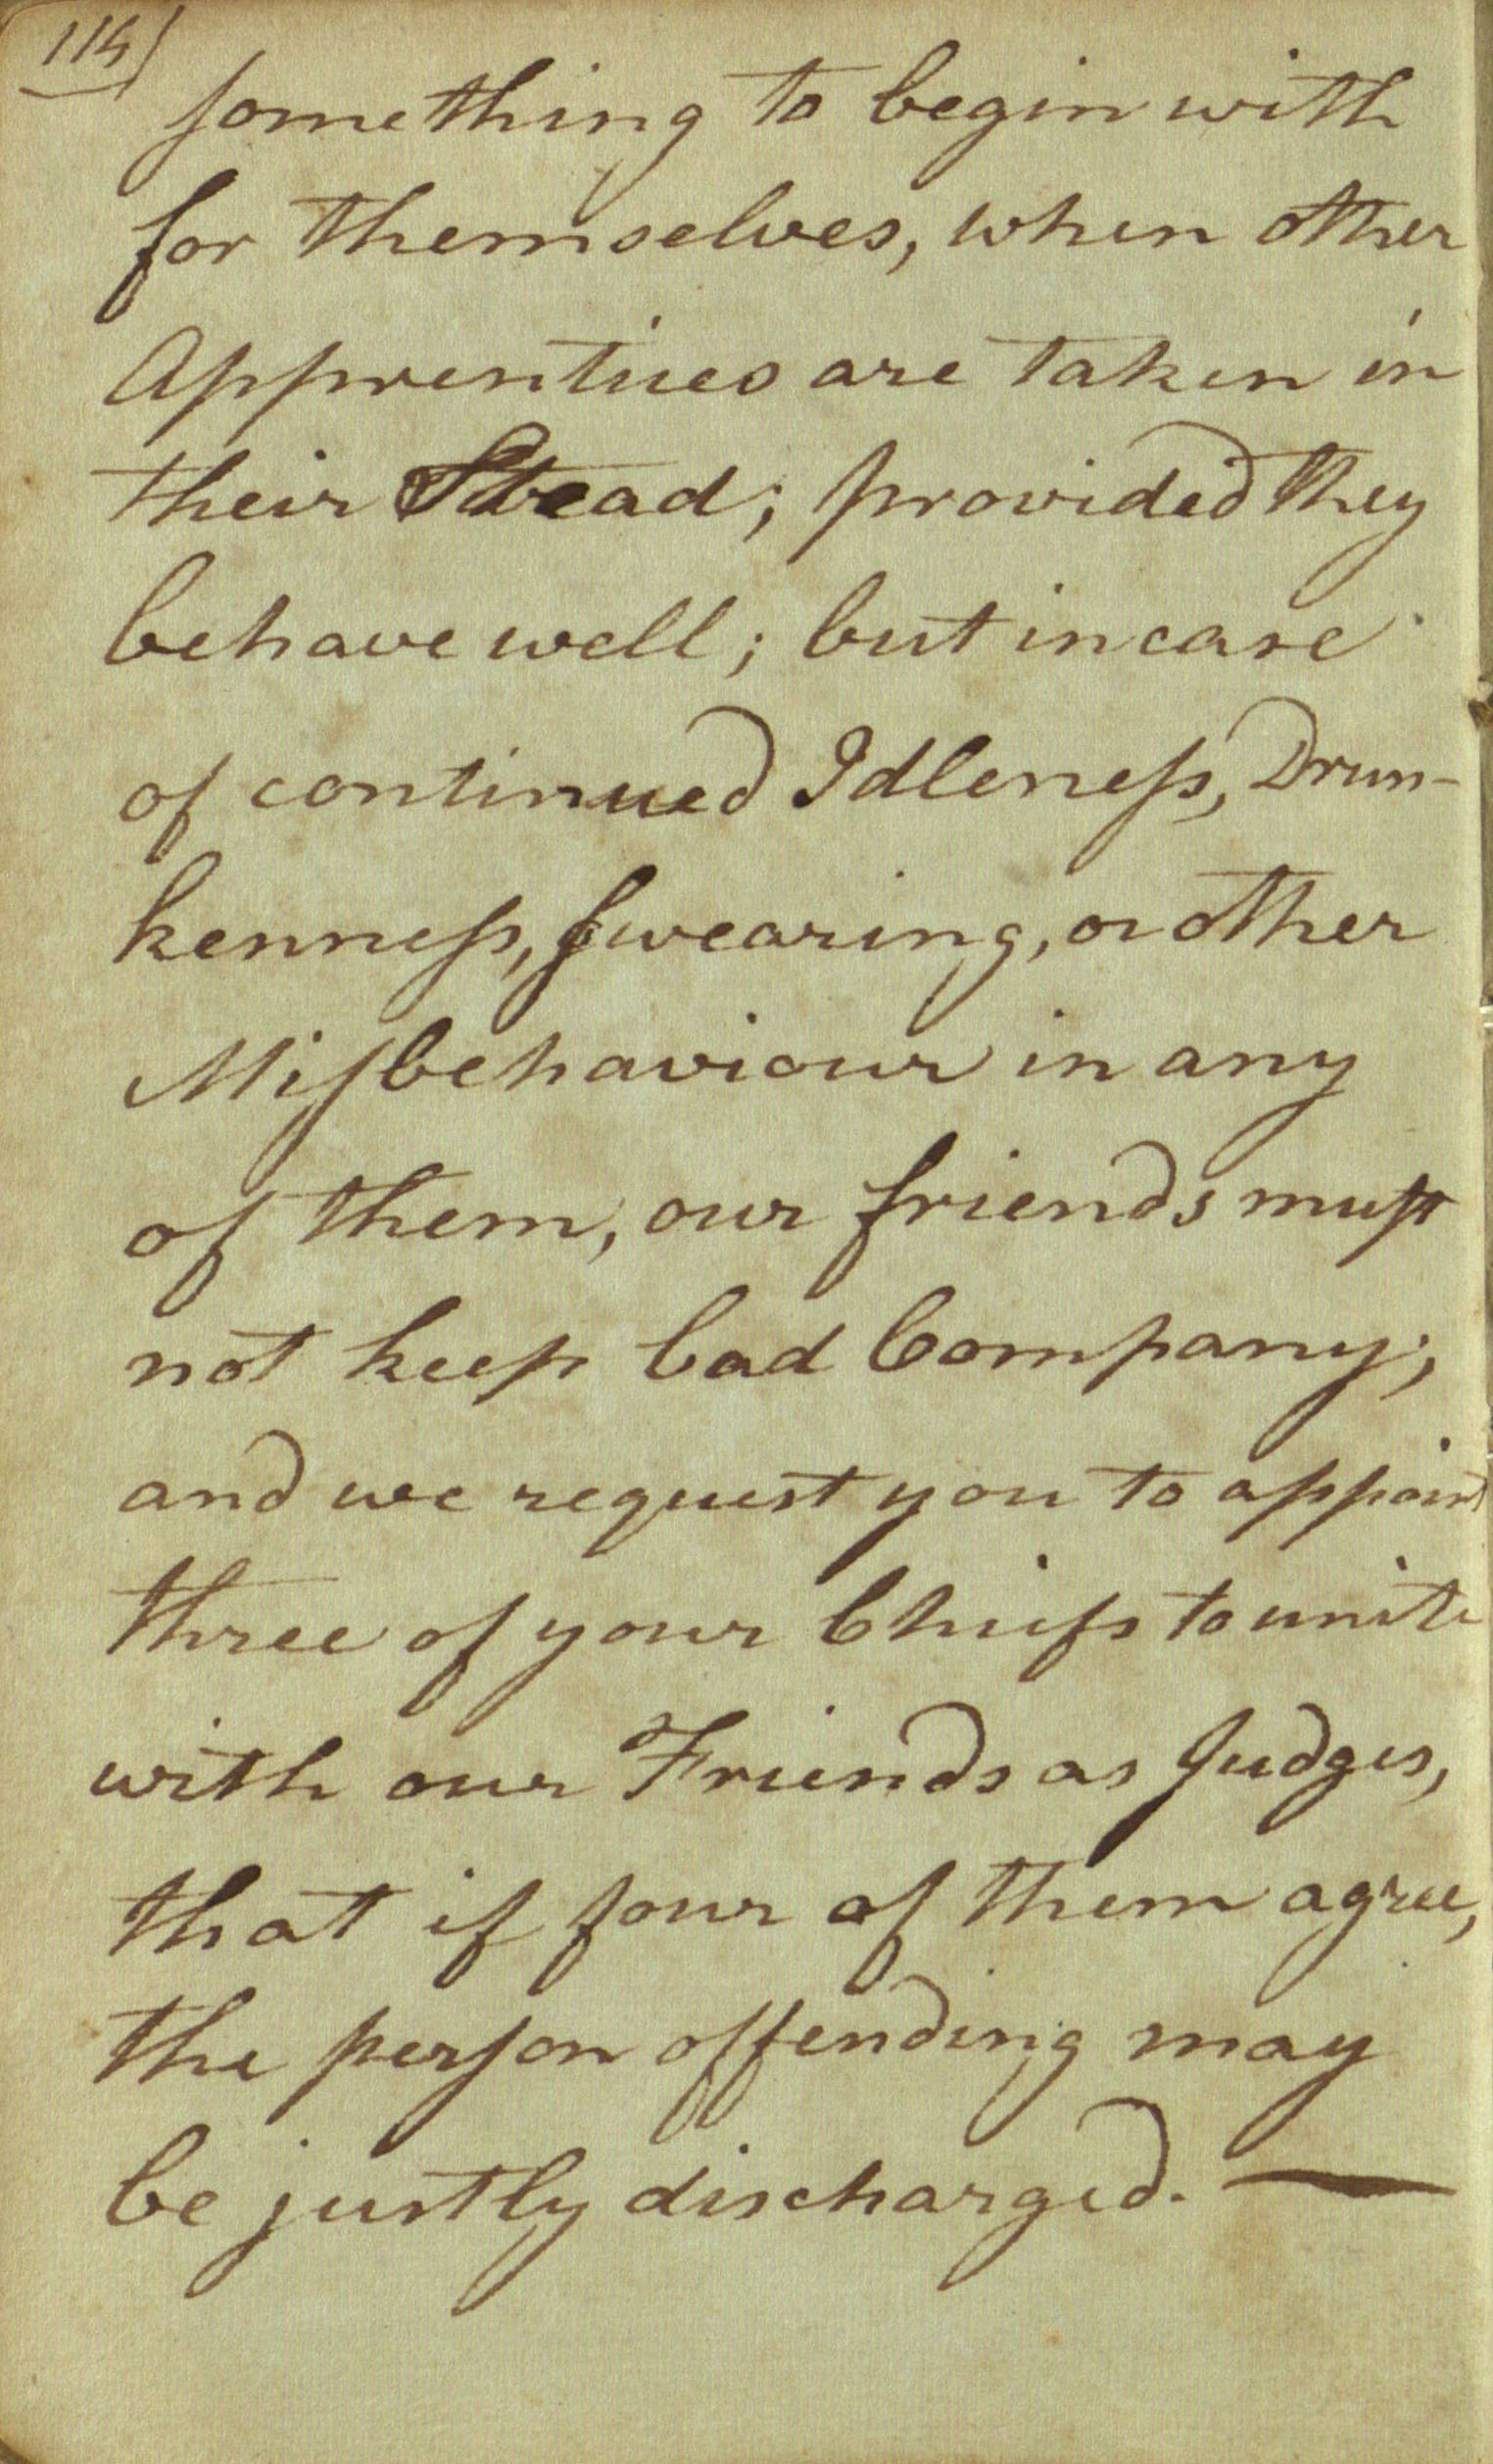 114
something to begin with
for themselves, when other
Apprentices are taken in
their Stead; provided they
behave well; but in case
of continued Idleness, Drun-
kenness, swearing, or other
Misbehaviour in any
of them, our friends must
not keep bad Company;
and we request you to appoint
three of your Chiefs to unite
with our Friends as Judges,
that if four of them agree,
the person offending may
be justly discharged. —